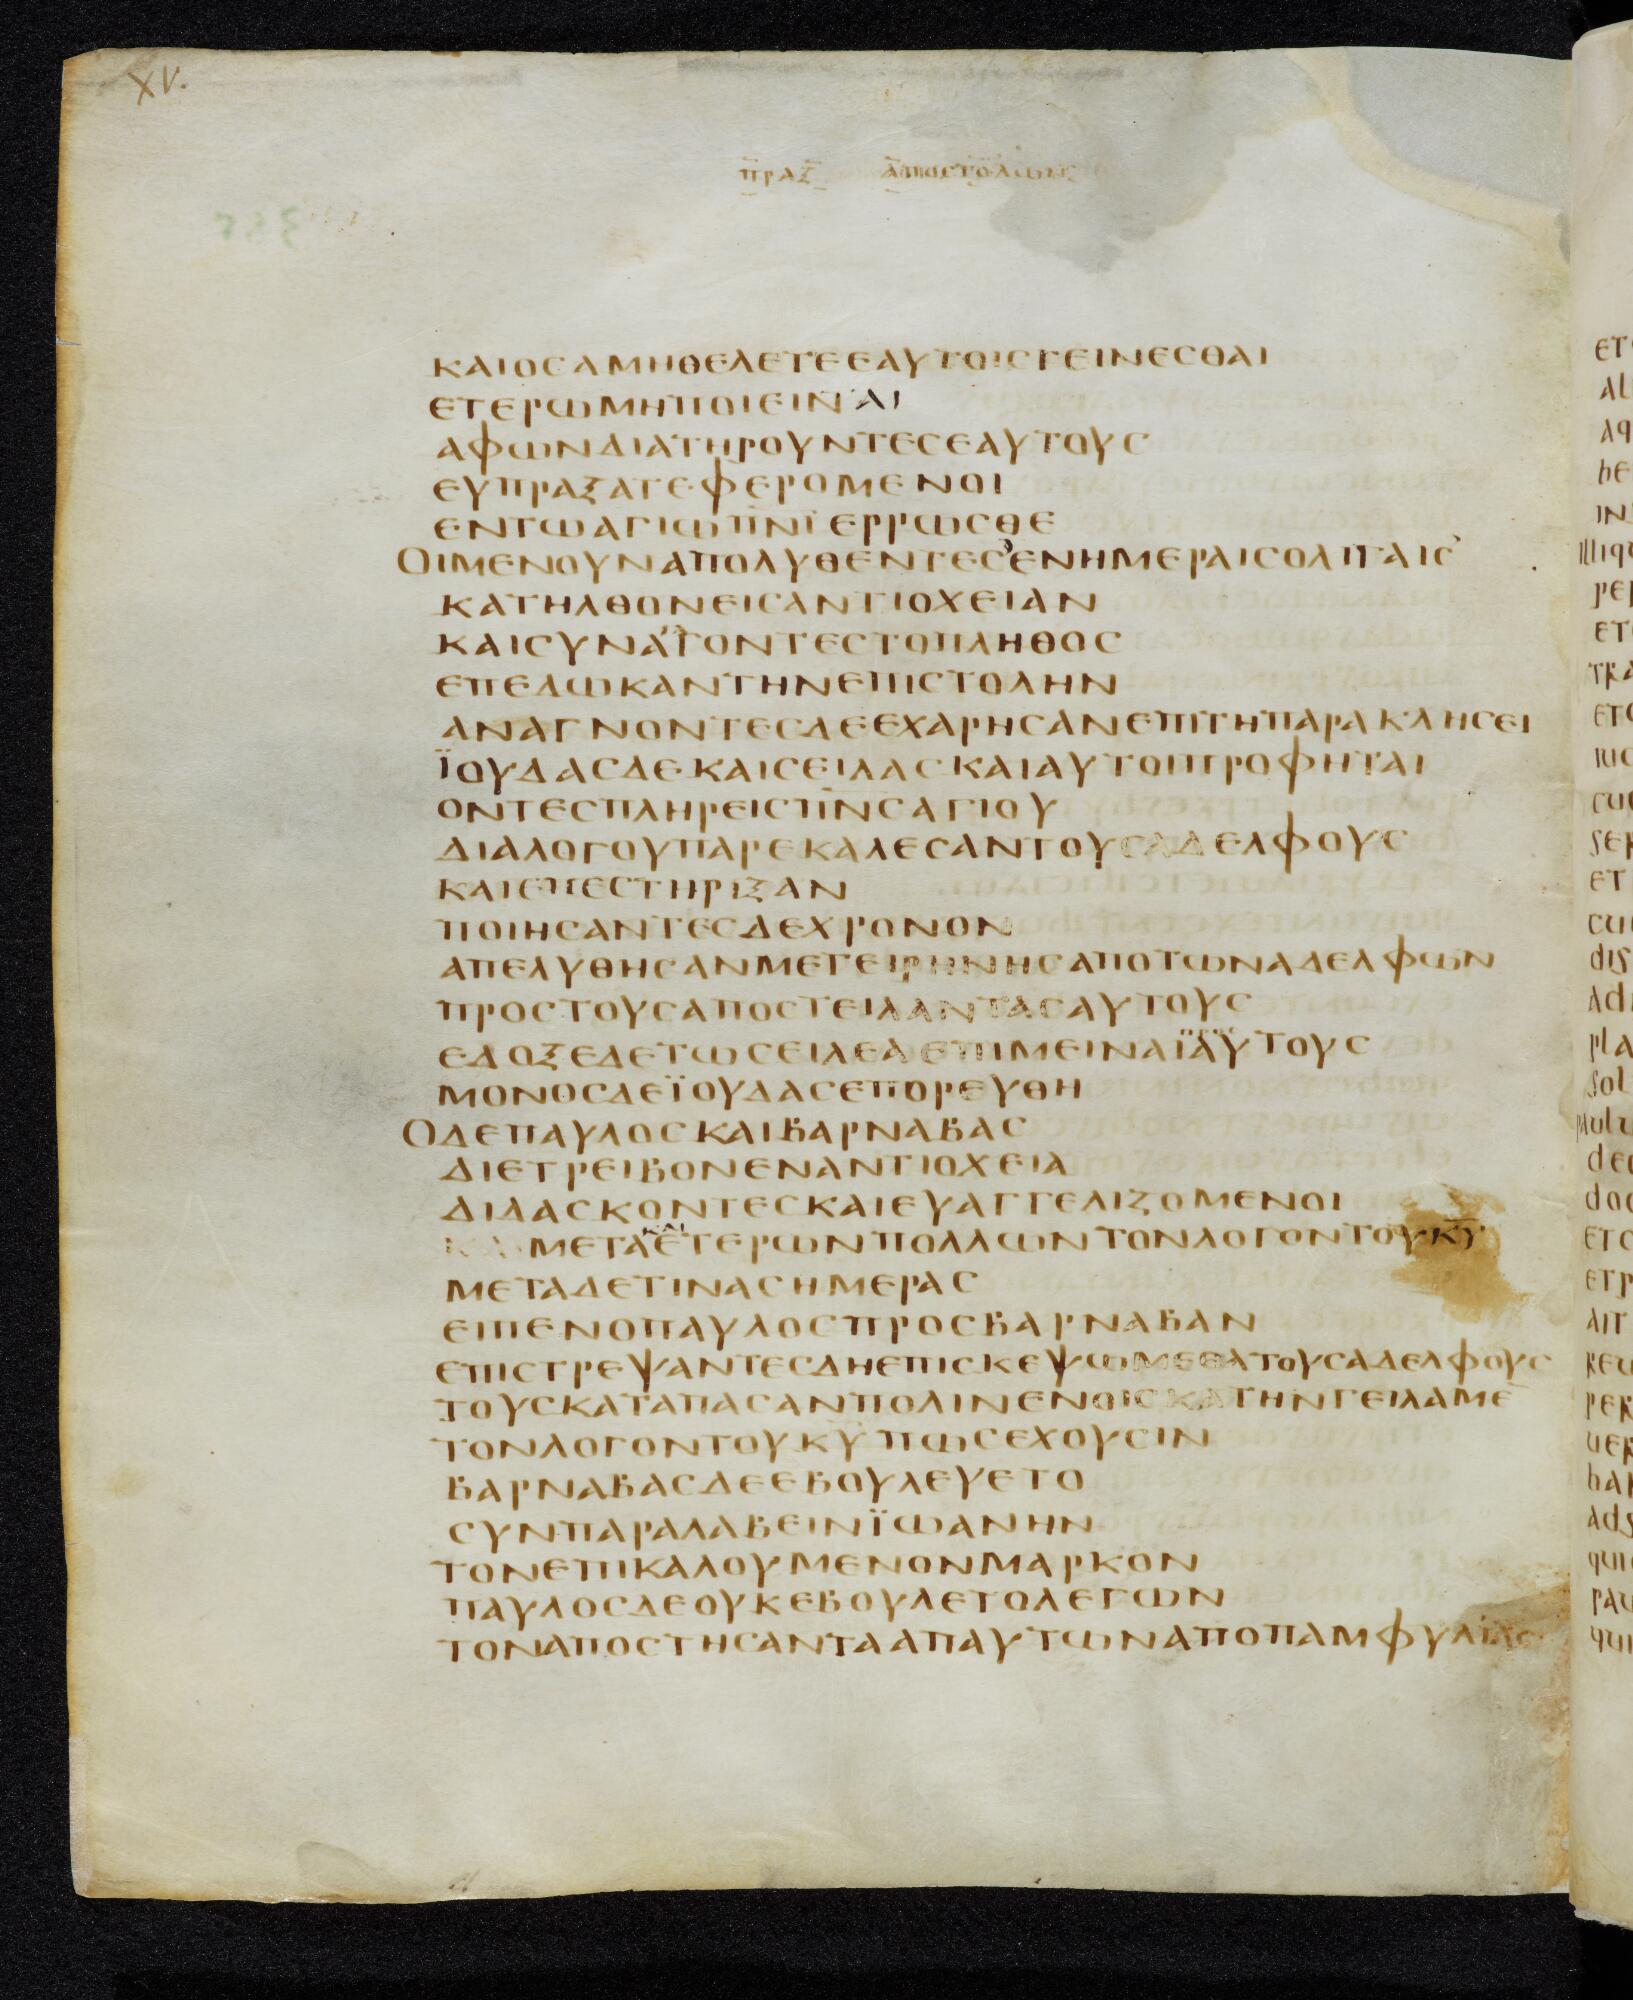 XV.
ΠΡΑΞ ΑΠΟСΤΟΛΩΝ
ΚΑΙΟСΑΜΗΘΕΛΕΤΕΕΑΥΤΟΙСΓΕΙΝΕСΘΑΙ
ΕΤΕΡΩΜΗΠΟΙΕΙΝΑΙ
ΑΦΩΝΔΙΑΤΗΡΟΥΝΤΕСΕΑΥΤΟΥС
ΕΥΠΡΑΞΑΤΕΦΕΡΟΜΕΝΟΙ
ΕΝΤΩΑΓΙΩΠ̅Ν̅Ι̅ΕΡΡΩСΘΕ
ΟΙΜΕΝΟΥΝΑΠΟΛΥΘΕΝΤΕСΕΝΗΜΕΡΑΙСΟΛΙΓΑΙС
ΚΑΤΗΛΘΟΝΕΙСΑΝΤΙΟΧΕΙΑΝ
ΚΑΙСΥΝΑΓΟΝΤΕСΤΟΠΛΗΘΟС
ΕΠΕΔΩΚΑΝΤΗΝΕΠΙСΤΟΛΗΝ
ΑΝΑΓΝΟΝΤΕСΔΕΕΧΑΡΗСΑΝΕΠΙΤΗΠΑΡΑΚΛΗСΕΙ
ΪΟΥΔΑСΔΕΚΑΙСΕΙΛΑСΚΑΙΑΥΤΟΙΠΡΟΦΗΤΑΙ
ΟΝΤΕСΠΛΗΡΕΙСΠ̅Ν̅С̅ΑΓΙΟΥ
ΔΙΑΛΟΓΟΥΠΑΡΕΚΑΛΕСΑΝΤΟΥСΑΔΕΛΦΟΥС
ΚΑΙΕΠΕСΤΗΡΙΞΑΝ
ΠΟΙΗСΑΝΤΕСΔΕΧΡΟΝΟΝ
ΑΠΕΛΥΘΗСΑΝΜΕΤΕΙΡΗΝΗСΑΠΟΤΩΝΑΔΕΛΦΩΝ
ΠΡΟСΤΟΥСΑΠΟСΤΕΙΛΑΝΤΑСΑΥΤΟΥС
ΕΔΟΞΕΔΕΤΩСΕΙΛΕΑΕΠΙΜΕΙΝΑΪΑΥΤΟΥС
ΜΟΝΟСΔΕΪΟΥΔΑСΕΠΟΡΕΥΘΗ
ΟΔΕΠΑΥΛΟСΚΑΙΒΑΡΝΑΒΑС
ΔΙΕΤΡΕΙΒΟΝΕΝΑΝΤΙΟΧΕΙΑ
ΔΙΔΑСΚΟΝΤΕСΚΑΙΕΥΑΓΓΕΛΙΖΟΜΕΝΟΙ
ΚΑΙ
ΚΑΙΜΕΤΑΕΤΕΡΩΝΠΟΛΛΩΝΤΟΝΛΟΓΟΝΤΟΥΚ̅Υ̅
ΜΕΤΑΔΕΤΙΝΑСΗΜΕΡΑС
ΕΙΠΕΝΟΠΑΥΛΟСΠΡΟСΒΑΡΝΑΒΑΝ
ΕΠΙСΤΡΕΨΑΝΤΕСΔΗΕΠΙСΚΕΨΩΜΕΘΑΤΟΥСΑΔΕΛΦΟΥС
ΤΟΥСΚΑΤΑΠΑСΑΝΠΟΛΙΝΕΝΟΙСΚΑΤΗΝΓΕΙΛΑΜΕ̅
ΤΟΝΛΟΓΟΝΤΟΥΚ̅Υ̅ΠΩСΕΧΟΥСΙΝ
ΒΑΡΝΑΒΑСΔΕΕΒΟΥΛΕΥΕΤΟ
СΥΝΠΑΡΑΛΑΒΕΙΝΪΩΑΝΗΝ
ΤΟΝΕΠΙΚΑΛΟΥΜΕΝΟΝΜΑΡΚΟΝ
ΠΑΥΛΟСΔΕΟΥΚΕΒΟΥΛΕΤΟΛΕΓΩΝ
ΤΟΝΑΠΟСΤΗСΑΝΤΑΑΠΑΥΤΩΝΑΠΟΠΑΜΦΥΛΙΑС